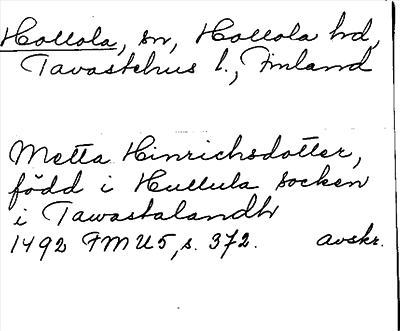 Hollola, sn, Hollola hd,
Tavastehus l., Finland
Metta Hinrichsdotter,
född i Hullula socken
i Tawastalandh
1492 FMU5, s. 372. avskr.